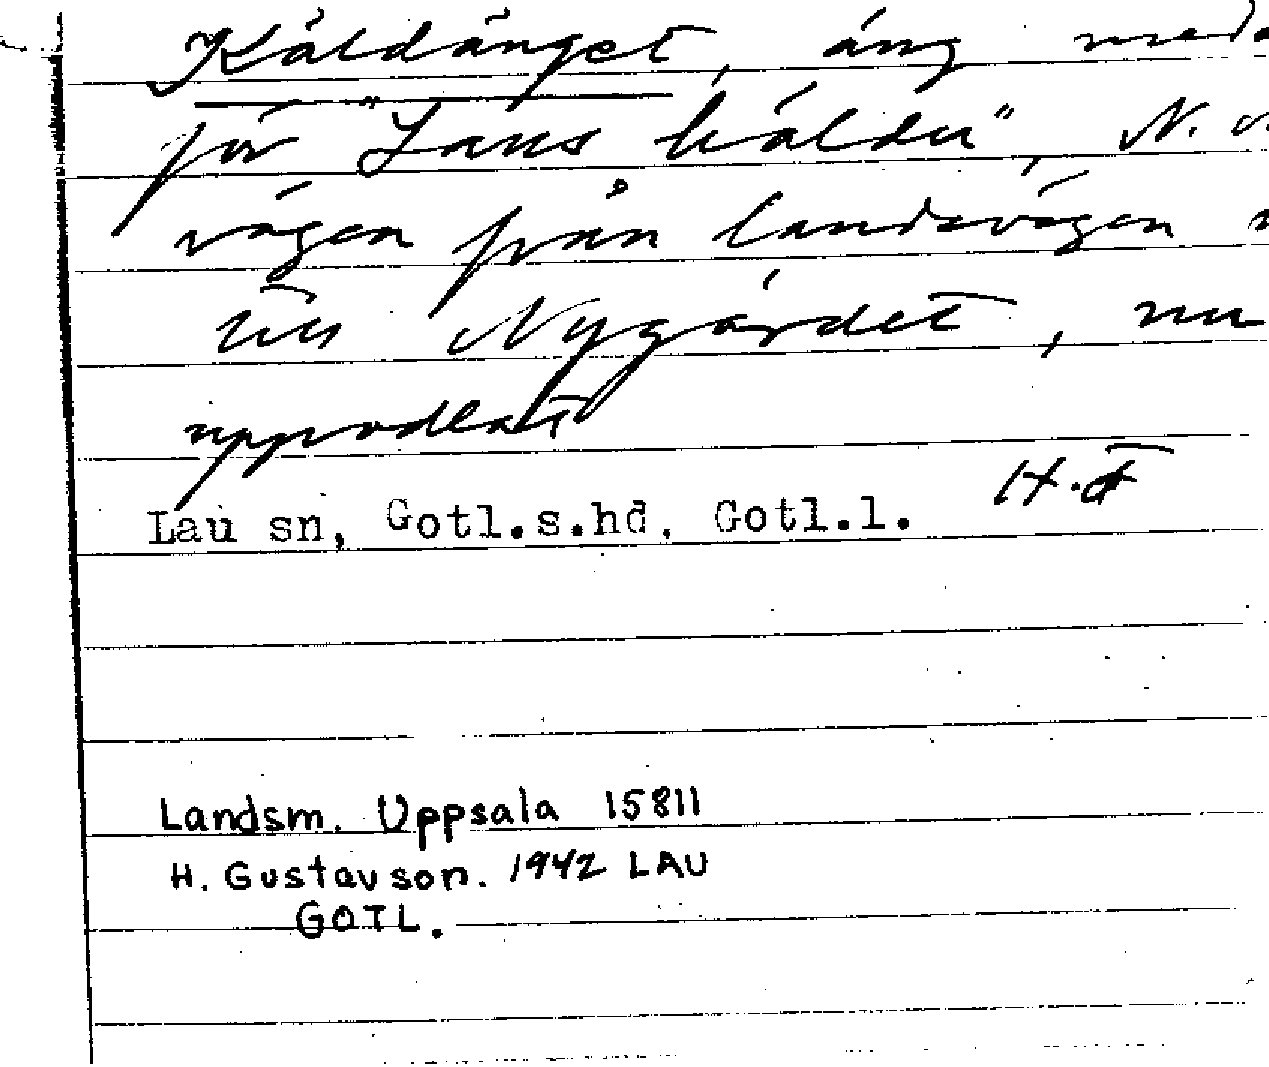 Käldänget, äng neda
för "Laus källdu", N. 
vägen från landsvägen
till Nygärdet, nu
uppodlat
H.
Lau sn, Gotl.s.hd, Gotl.l.
Landsm. Uppsala 15811
H. Gustavson. 1942 LAU
GOTL.